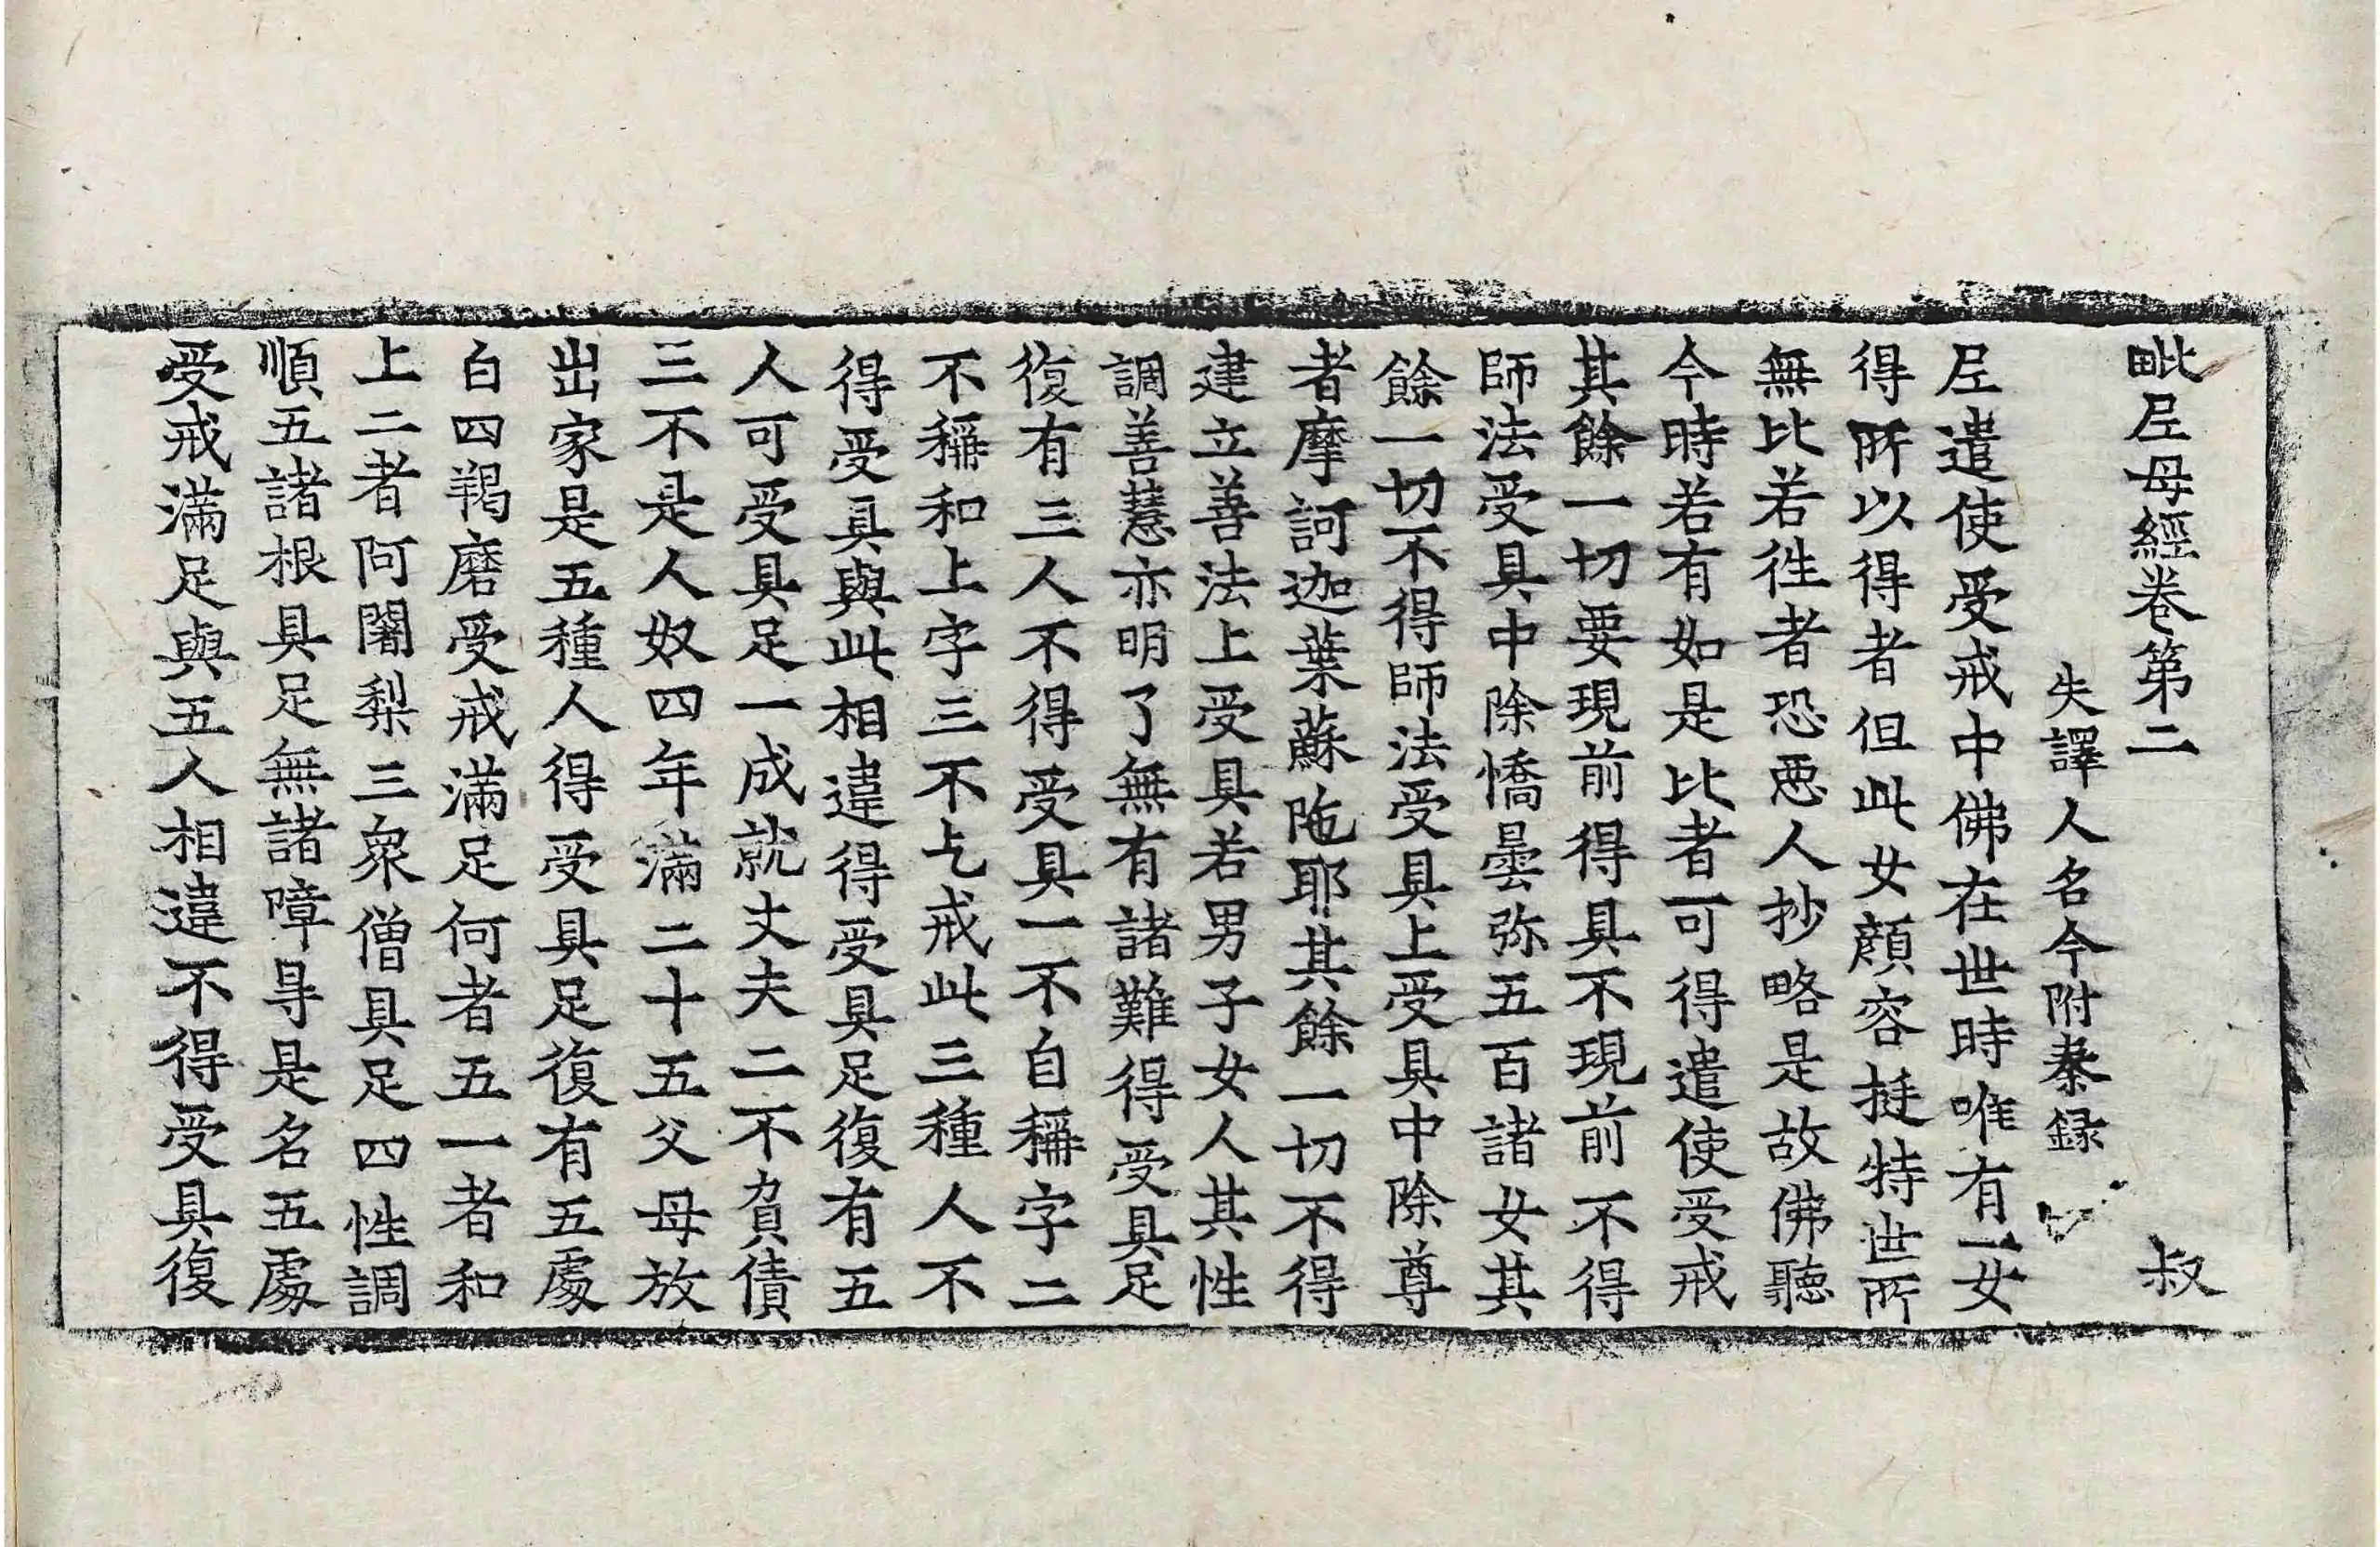 毗尼母經卷第二 叔
失譯人名今附秦録
尼遣使受戒中佛在世時唯有一女
得所以得者但此女顔容挺特世所
無比若往者恐惡人抄略是故佛聽
今時若有如是比者可得遣使受戒
其餘一切要現前得具不現前不得
師法受具中除憍曇弥五百諸女其
餘一切不得師法受具上受具中除尊
者摩訶迦葉蘇陁耶其餘一切不得
建立善法上受具若男子女人其性
調善慧亦明了無有諸難得受具足
復有三人不得受具一不自稱字二
不稱和上字三不乞戒此三種人不
得受具與此相違得受具足復有五
人可受具足一成就丈夫二不負債
三不是人奴四年滿二十五父母放
出家是五種人得受具足復有五處
白四羯磨受戒滿足何者五一者和
上二者阿闍梨三衆僧具足四性調
順五諸根具足無諸障㝵是名五處
受戒滿足與五人相違不得受具復